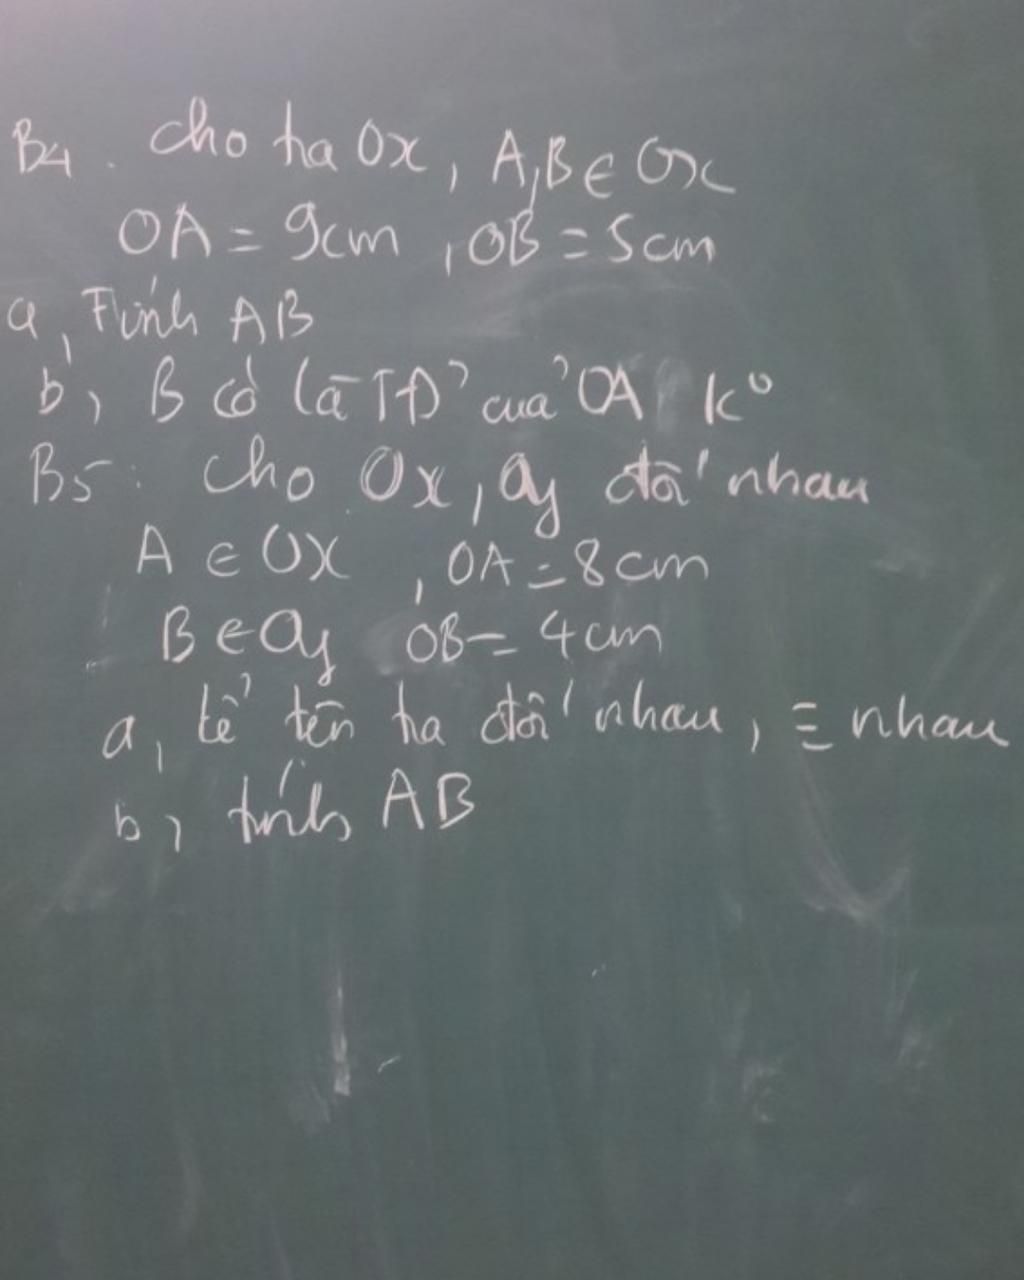 B4. Cho tia Ox, A,B ∈ Ox
OA = 9cm, OB = 5cm
a, Tính AB
b, B có là TĐ' của OA k°
B5: Cho Ox, Oy đối nhau
A ∈ Ox, OA = 8cm
B ∈ Oy OB = 4cm
a, kể tên tia đối nhau, ≡ nhau
b, tính AB